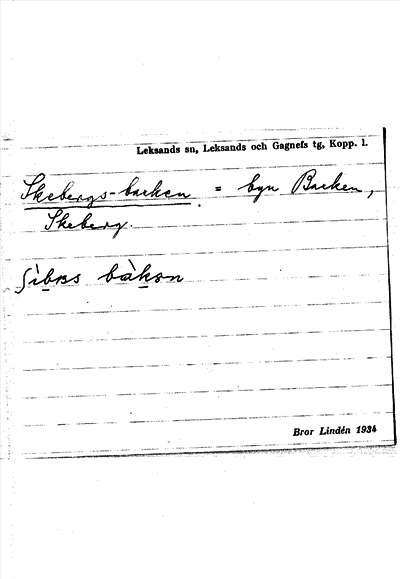 Leksands sn, Leksands och Gagnefs tg, Kopp. l.
Skebergs-backen = byn Backen,
Skeberg.
bàkən
Bror Lindén 1934